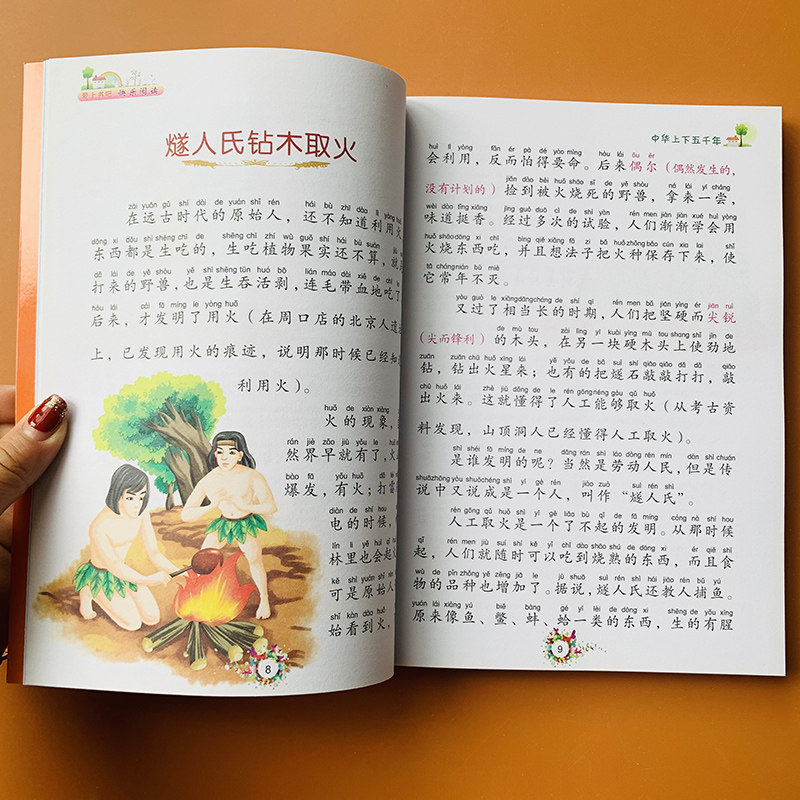 爱上书吧 快乐阅读
燧人氏钻木取火
zài yuǎn gǔ shí dài de yuán shǐ rén hái bù zhī dào lì yòng huǒ
在远古时代的原始人，还不知道利用火
dōng xi dōu shì shēng chī de shēng chī zhí wù guǒ shí hái bú suàn
东西都是生吃的，生吃植物果实还不算，就是
dǎ lái de yě shòu yě shì shēng tūn huó bō lián máo dài xiě de chī le
打来的野兽，也是生吞活剥，连毛带血地吃了
hòu lái cái fā míng le yòng huǒ
后来，才发明了用火（在周口店的北京人遗
上，已发现用火的痕迹，说明那时候已经知
利用火）。
huǒ de xiàn xiàng
火的现象，
rán jiè zǎo jiù yǒu le huǒ
然界早就有了，火
bào fā yǒu huǒ dǎ léi
爆发，有火；打雷
diàn de shí hou
电的时候，
lín lǐ yě huì qǐ huǒ
林里也会起火
kě shì yuán shǐ rén
可是原始人
shǐ kàn dào huǒ
始看到火，
8
中华上下五千年
huì lì yòng fǎn ér pà de yào mìng hòu lái ǒu ěr
会利用，反而怕得要命。后来偶尔（偶然发生的，
jiǎn dào bèi huǒ shāo sǐ de yě shòu ná lái yì cháng
没有计划的）捡到被火烧死的野兽，拿来一尝，
wèi dào tǐng xiāng jīng guò duō cì de shì yàn rén men jiàn jiàn xué huì yòng
味道挺香。经过多次的试验，人们渐渐学会用
huǒ shāo dōng xi chī bìng qiě xiǎng fǎ zi bǎ huǒ zhǒng bǎo cún xia lai shǐ
火烧东西吃，并且想法子把火种保存下来，使
tā cháng nián bú miè
它常年不灭。
yòu guò le xiāng dāng cháng de shí qī rén men bǎ jiān yìng ér jiān ruì
又过了相当长的时期，人们把坚硬而尖锐
de mù tou zài lìng yí kuài yìng mù tou shang shǐ jìn de
（尖而锋利）的木头，在另一块硬木头上使劲地
zuān zuān chū huǒ xīng lái yě yǒu de bǎ suì shí qiāo qiāo dǎ dǎ qiāo
钻，钻出火星来；也有的把燧石敲敲打打，敲
chū huǒ lái zhè jiù dǒng de le rén gōng néng gòu qǔ huǒ
出火来。这就懂得了人工能够取火（从考古资
料发现，山顶洞人已经懂得人工取火）。
shì shéi fā míng de ne dāng rán shì láo dòng rén mín dàn shì chuán
是谁发明的呢？当然是劳动人民，但是传
shuō zhōng yòu shuō chéng shì yí gè rén jiào zuò suì rén shì
说中又说成是一个人，叫作“燧人氏”。
rén gōng qǔ huǒ shì yí gè liǎo bu qǐ de fā míng cóng nà shí hou
人工取火是一个了不起的发明。从那时候
qǐ rén men jiù suí shí kě yǐ chī dào shāo shú de dōng xi ér qiě shí
起，人们就随时可以吃到烧熟的东西，而且食
wù de pǐn zhǒng yě zēng jiā le jù shuō suì rén shì hái jiāo rén bǔ yú
物的品种也增加了。据说，燧人氏还教人捕鱼。
yuán lái xiàng yú biē bàng gé yí lèi de dōng xi shēng de yǒu xīng
原来像鱼、鳖、蚌、蛤一类的东西，生的有腥
9